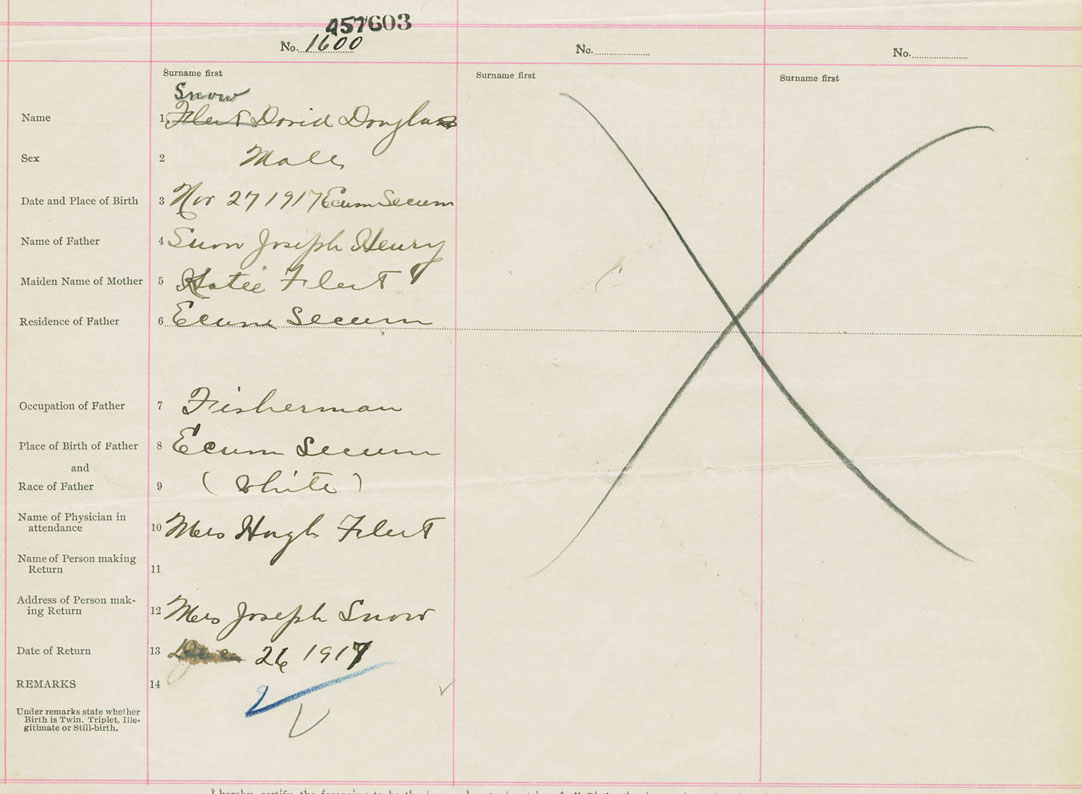 457603
No. 1600 No. No.
Surname first Surname first Surname first
Snow
Name 1. Flert David Douglas
Sex 2 Male
Date and Place of Birth 3 Nov 27 1917 Ecum Secum
Name of Father 4 Snow Joseph Henry
Maiden Name of Mother 5 Katie Flert
Residence of Father 6 Ecum Secum
Occupation of Father 7 Fisherman
Place of Birth of Father 8 Ecum Secum
and
Race of Father 9 (White)
Name of Physician in
attendance 10 Mrs Hugh Flert
Name of Person making
Return 11
Address of Person mak-
ing Return 12 Mrs Joseph Snow
Date of Return 13 26 1917
REMARKS 14
Under remarks state whether
Birth is Twin, Triplet, Ille-
gitimate or Still-birth.
I hereby certify the foregoing to be the